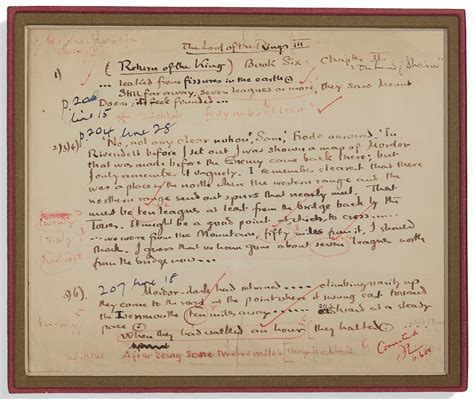 The Lord of the Rings III
(Return of the King) Book Six: Chapter II
1) ... leaked from fissures in the earth.
p.200 Still far away, seven leagues or more, they saw Mount
line 15 Doom, its feet founded ...
p.204 line 28
2)3)4) 'No, not any clear notion, Sam,' Frodo answered. 'In
Rivendell before I set out I was shown a map of Mordor
that was made before the Enemy came back there; but
I only remember it vaguely. I remember clearest that there
was a place in the north where the western range and the
northern range send out spurs that nearly met. That
must be ten leagues at least from the bridge back by the
Tower. It might be a good point at which to cross .....
..... were from the Mountain, fifty miles from it, I should
think. I guess that we have gone about seven leagues north
from the bridge now ...
207 line 18
5)6) Mordor-dark had returned ..... climbing warily up
they came to the road at the point where it swung east toward
the Isenmouthe ten miles away ..... at a steady
pace.
When they had walked an hour they halted
After doing some twelve miles, they halted
Corrected